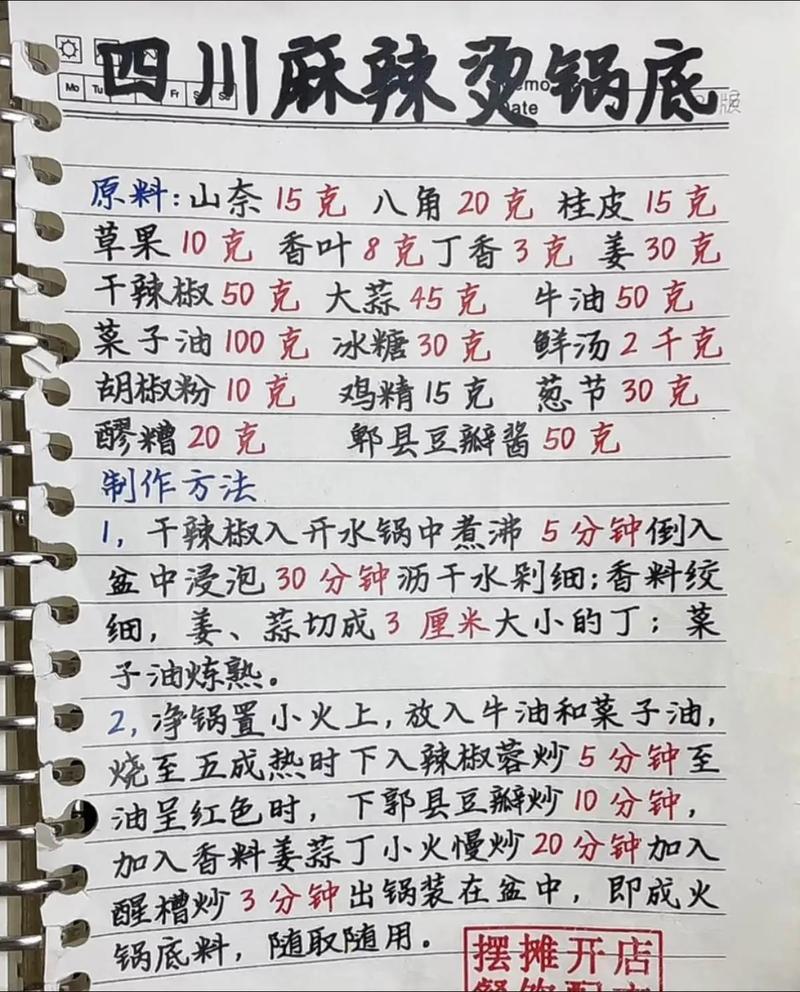 四川麻辣烫锅底
Mo Tu Fr S Su Memo
Date
版
原料:山奈15克 八角20克 桂皮15克
草果10克 香叶8克丁香3克 姜30克
干辣椒50克 大蒜45克 牛油50克
菜子油100克 冰糖30克 鲜汤2千克
胡椒粉10克 鸡精15克 葱节30克
醪糟20克 郫县豆瓣酱50克
制作方法
1,干辣椒入开水锅中煮沸5分钟倒入
盆中浸泡30分钟沥干水剁细;香料绞
细,姜、蒜切成3厘米大小的丁;菜
子油炼熟。
2,净锅置小火上,放入牛油和菜子油,
烧至五成热时下入辣椒蓉炒5分钟至
油呈红色时,下郭县豆瓣炒10分钟,
加入香料姜蒜丁小火慢炒20分钟加入
醒槽炒3分钟出锅装在盆中,即成火
锅底料,随取随用。
摆摊开店